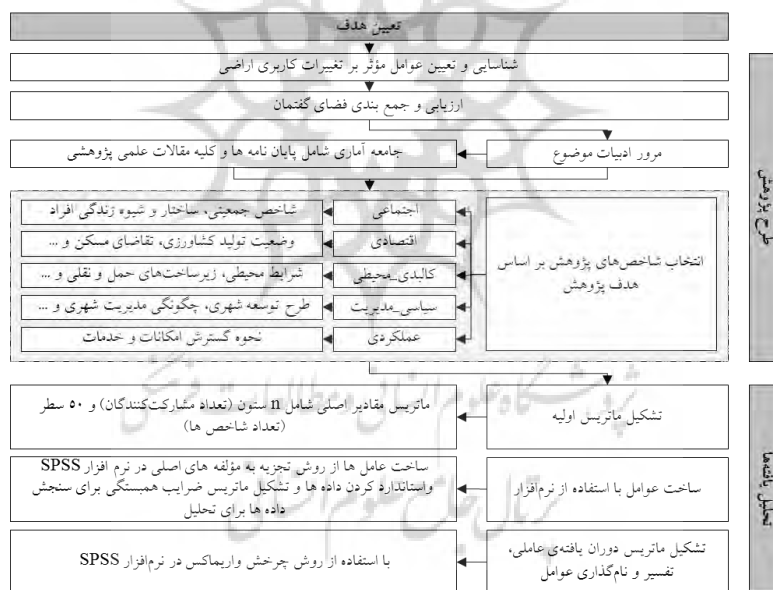 تعیین هدف
شناسایی و تعیین عوامل مؤثر بر تغییرات کاربری اراضی
ارزیابی و جمع بندی فضای گفتمان
مرور ادبیات موضوع
جامعه آماری شامل پایان نامه ها و کلیه مقالات علمی پژوهشی
طرح پژوهش
انتخاب شاخص‌های پژوهش بر اساس
هدف پژوهش
اجتماعی
شاخص جمعیتی، ساختار و شیوه زندگی افراد
اقتصادی
وضعیت تولید کشاورزی، تقاضای مسکن و ...
کالبدی_محیطی
شرایط محیطی، زیرساخت‌های حمل و نقلی و ...
سیاسی_مدیریت
طرح توسعه شهری، چگونگی مدیریت شهری و ...
عملکردی
نحوه گسترش امکانات و خدمات
تحلیل یافته‌ها
تشکیل ماتریس اولیه
ماتریس مقادیر اصلی شامل n ستون (تعداد مشارکت‌کنندگان) و ۵۰ سطر
(تعداد شاخص ها)
ساخت عوامل با استفاده از نرم‌افزار
ساخت عامل ها از روش تجزیه به مؤلفه های اصلی در نرم افزار SPSS
واستاندارد کردن داده ها و تشکیل ماتریس ضرایب همبستگی برای سنجش
داده ها برای تحلیل
تشکیل ماتریس دوران یافته‌ی عاملی،
تفسیر و نام‌گذاری عوامل
با استفاده از روش چرخش واریماکس در نرم‌افزار SPSS
پژوهشگاه علوم انسانی و مطالعات فرهنگی
پرتال جامع علوم انسانی